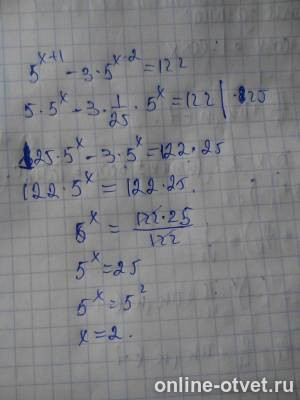 5^(x+1) - 3·5^(x-2) = 122
5·5^x - 3·1/25·5^x = 122 | ·25
125·5^x - 3·5^x = 122·25
122·5^x = 122·25.
5^x = 122·25/122
5^x = 25
5^x = 5^2
x = 2.
online-otvet.ru